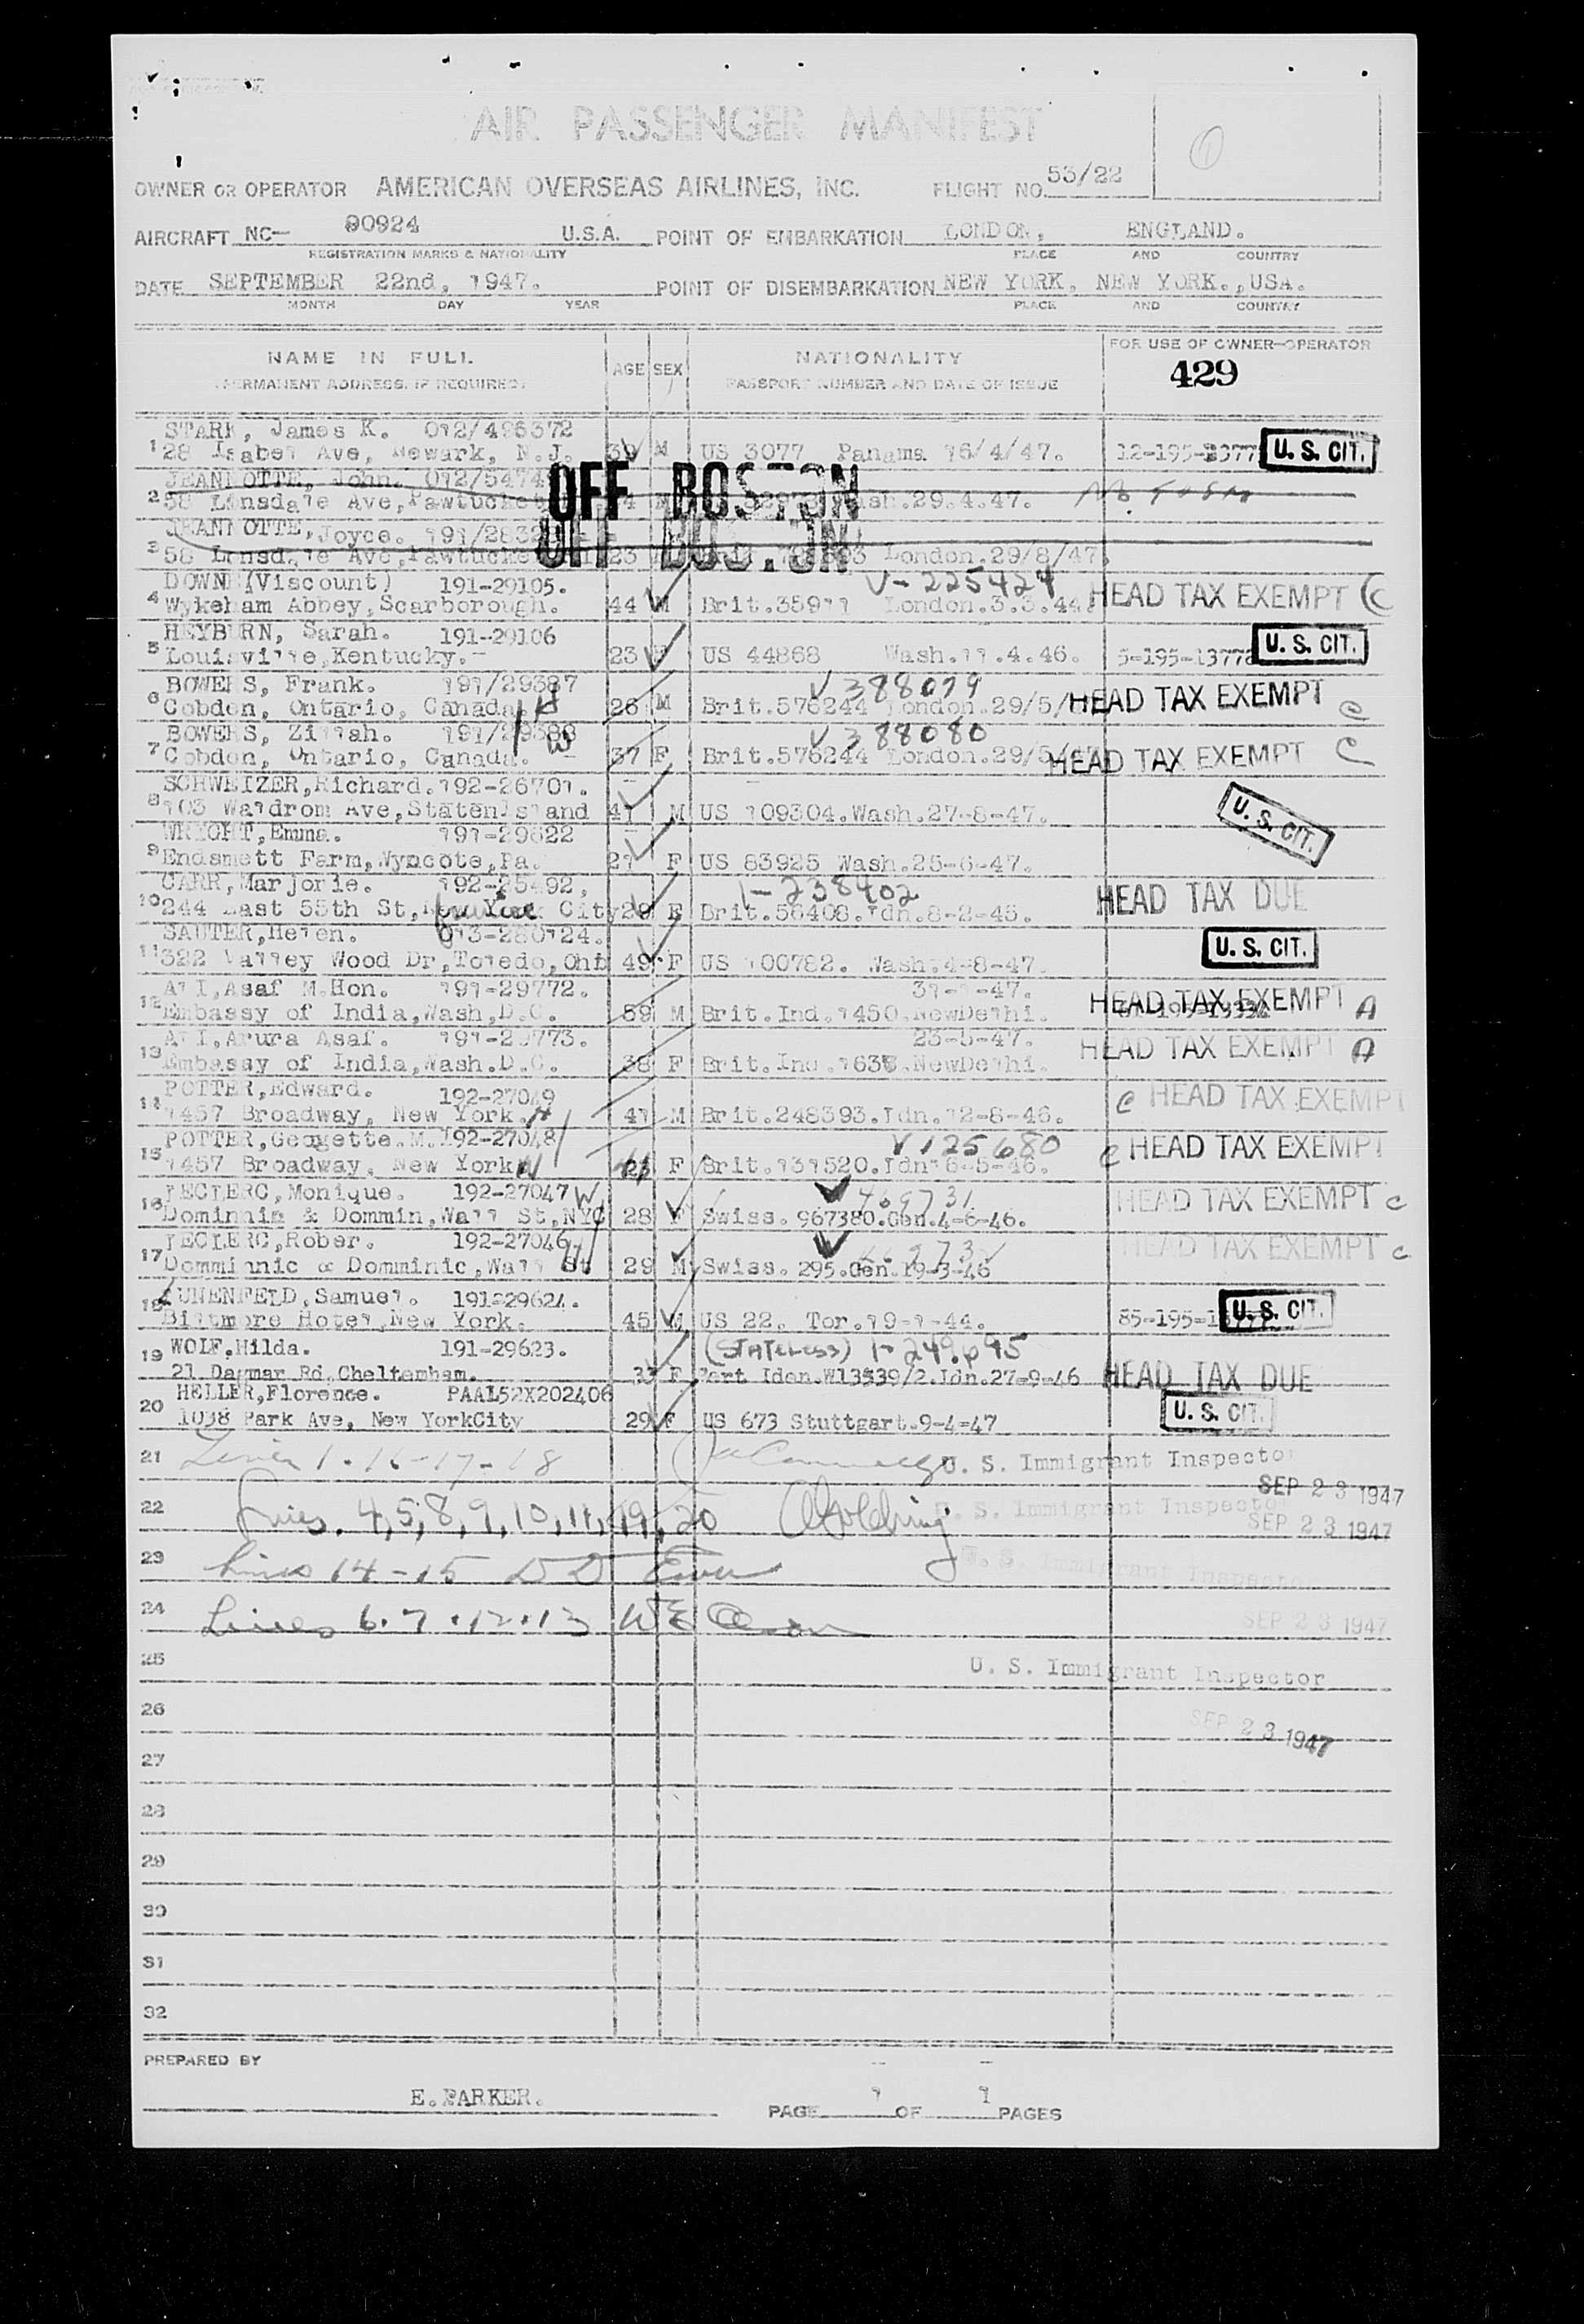 AIR PASSENGER MANIFEST
OWNER OR OPERATOR AMERICAN OVERSEAS AIRLINES, INC. FLIGHT NO. 53/22
AIRCRAFT NC— 90924 U.S.A. POINT OF EMBARKATION LONDON, ENGLAND.
REGISTRATION MARKS & NATIONALITY PLACE AND COUNTRY
DATE SEPTEMBER 22nd, 1947. POINT OF DISEMBARKATION NEW YORK, NEW YORK.,USA.
MONTH DAY YEAR PLACE AND COUNTRY
NAME IN FULL AGE SEX NATIONALITY FOR USE OF OWNER-OPERATOR
(PERMANENT ADDRESS, IF REQUIRED) PASSPORT NUMBER AND DATE OF ISSUE 429
STARK, James K.
1 28 Isabel Ave, Newark, N.J. 39 M US 3077 Panama 16/4/47. U. S. CIT.
JEANNOTTE, John.
2 58 Lonsdale Ave, Pawtucket M Wash.29.4.47.
OFF BOSTON
JEANNOTTE, Joyce.
3 58 Lonsdale Ave, 23 London.29/8/47.
OFF BOSTON
DOWNE (Viscount) 191-29105. V-225424
4 Wykeham Abbey, Scarborough. 44 M Brit.35911 London.3.3.44. HEAD TAX EXEMPT C
HEYBURN, Sarah. 191-29106
5 Louisville, Kentucky. 23 F US 44868 Wash.11.4.46. U. S. CIT.
BOWERS, Frank. 191/29387 V 388079
6 Cobden, Ontario, Canada. H 26 M Brit.576244 London.29/5/ HEAD TAX EXEMPT C
BOWERS, Zillah. 191/29388 V 388080
7 Cobden, Ontario, Canada. W 37 F Brit.576244 London.29/5/ HEAD TAX EXEMPT C
SCHWEIZER, Richard. 192-26701.
8 103 Waldrom Ave, Staten Island 41 M US 109304.Wash.27-8-47. U. S. CIT.
WRIGHT, Emma. 191-29622
9 Endsmett Farm, Wyncote, Pa. 27 F US 83925 Wash.25-6-47.
CARR, Marjorie. 192-25492, 1-238402
10 244 East 55th St, New York City 29 F Brit.56408.Ldn.8-2-45. HEAD TAX DUE
SAUTER, Helen. 013-280124.
11 322 Valley Wood Dr, Toledo, Ohi 49 F US 100782. Wash.4-8-47. U. S. CIT.
ALI, Asaf M.Hon. 191-29772. 31-1-47.
12 Embassy of India, Wash, D.C. 59 M Brit.Ind.1450.NewDelhi. HEAD TAX EXEMPT A
ALI, Aruna Asaf. 191-29773. 23-5-47.
13 Embassy of India, Wash.D.C. 38 F Brit.Ind. NewDelhi. HEAD TAX EXEMPT A
POTTER, Edward. 192-27049
14 1457 Broadway, New York. H 41 M Brit.248393.Ldn.12-8-46. C HEAD TAX EXEMPT
POTTER, Georgette.M. 192-27048 V125680
15 1457 Broadway, New York W F Brit.131520.Ldn16-5-46. C HEAD TAX EXEMPT
LECLERC, Monique. 192-27047 W 469731
16 Dominnie & Dommin, Wall St, NYC 28 F Swiss. 967380.Gen.4-6-46. HEAD TAX EXEMPT C
LECLERC, Rober. 192-27046. H
17 Domminnic & Domminic, Wall St 29 M Swiss. 295.Gen.19-3-46 HEAD TAX EXEMPT C
LUNENFELD, Samuel. 191-29624.
18 Biltmore Hotel, New York. 45 M US 22. Tor.19-1-44. U. S. CIT.
19 WOLF, Hilda. 191-29623. (STATELESS) 1-249095
21 Dagmar Rd, Cheltenham. 33 F Cert Iden.W13539/2.Ldn.27-9-46 HEAD TAX DUE
HELLER, Florence. PAA152X202406
20 1038 Park Ave, New YorkCity 29 F US 673 Stuttgart.9-4-47 U. S. CIT.
21 Lines 1-16-17-18 U. S. Immigrant Inspector
SEP 23 1947
22 Lines. 4,5,8,9,10,11,19,20 U. S. Immigrant Inspector
SEP 23 1947
23 Lines 14-15 U. S. Immigrant Inspector
24 Lines 6.7.12.13 SEP 23 1947
25 U. S. Immigrant Inspector
26 SEP 23 1947
27
28
29
30
31
32
PREPARED BY
E. PARKER. PAGE 1 OF 1 PAGES